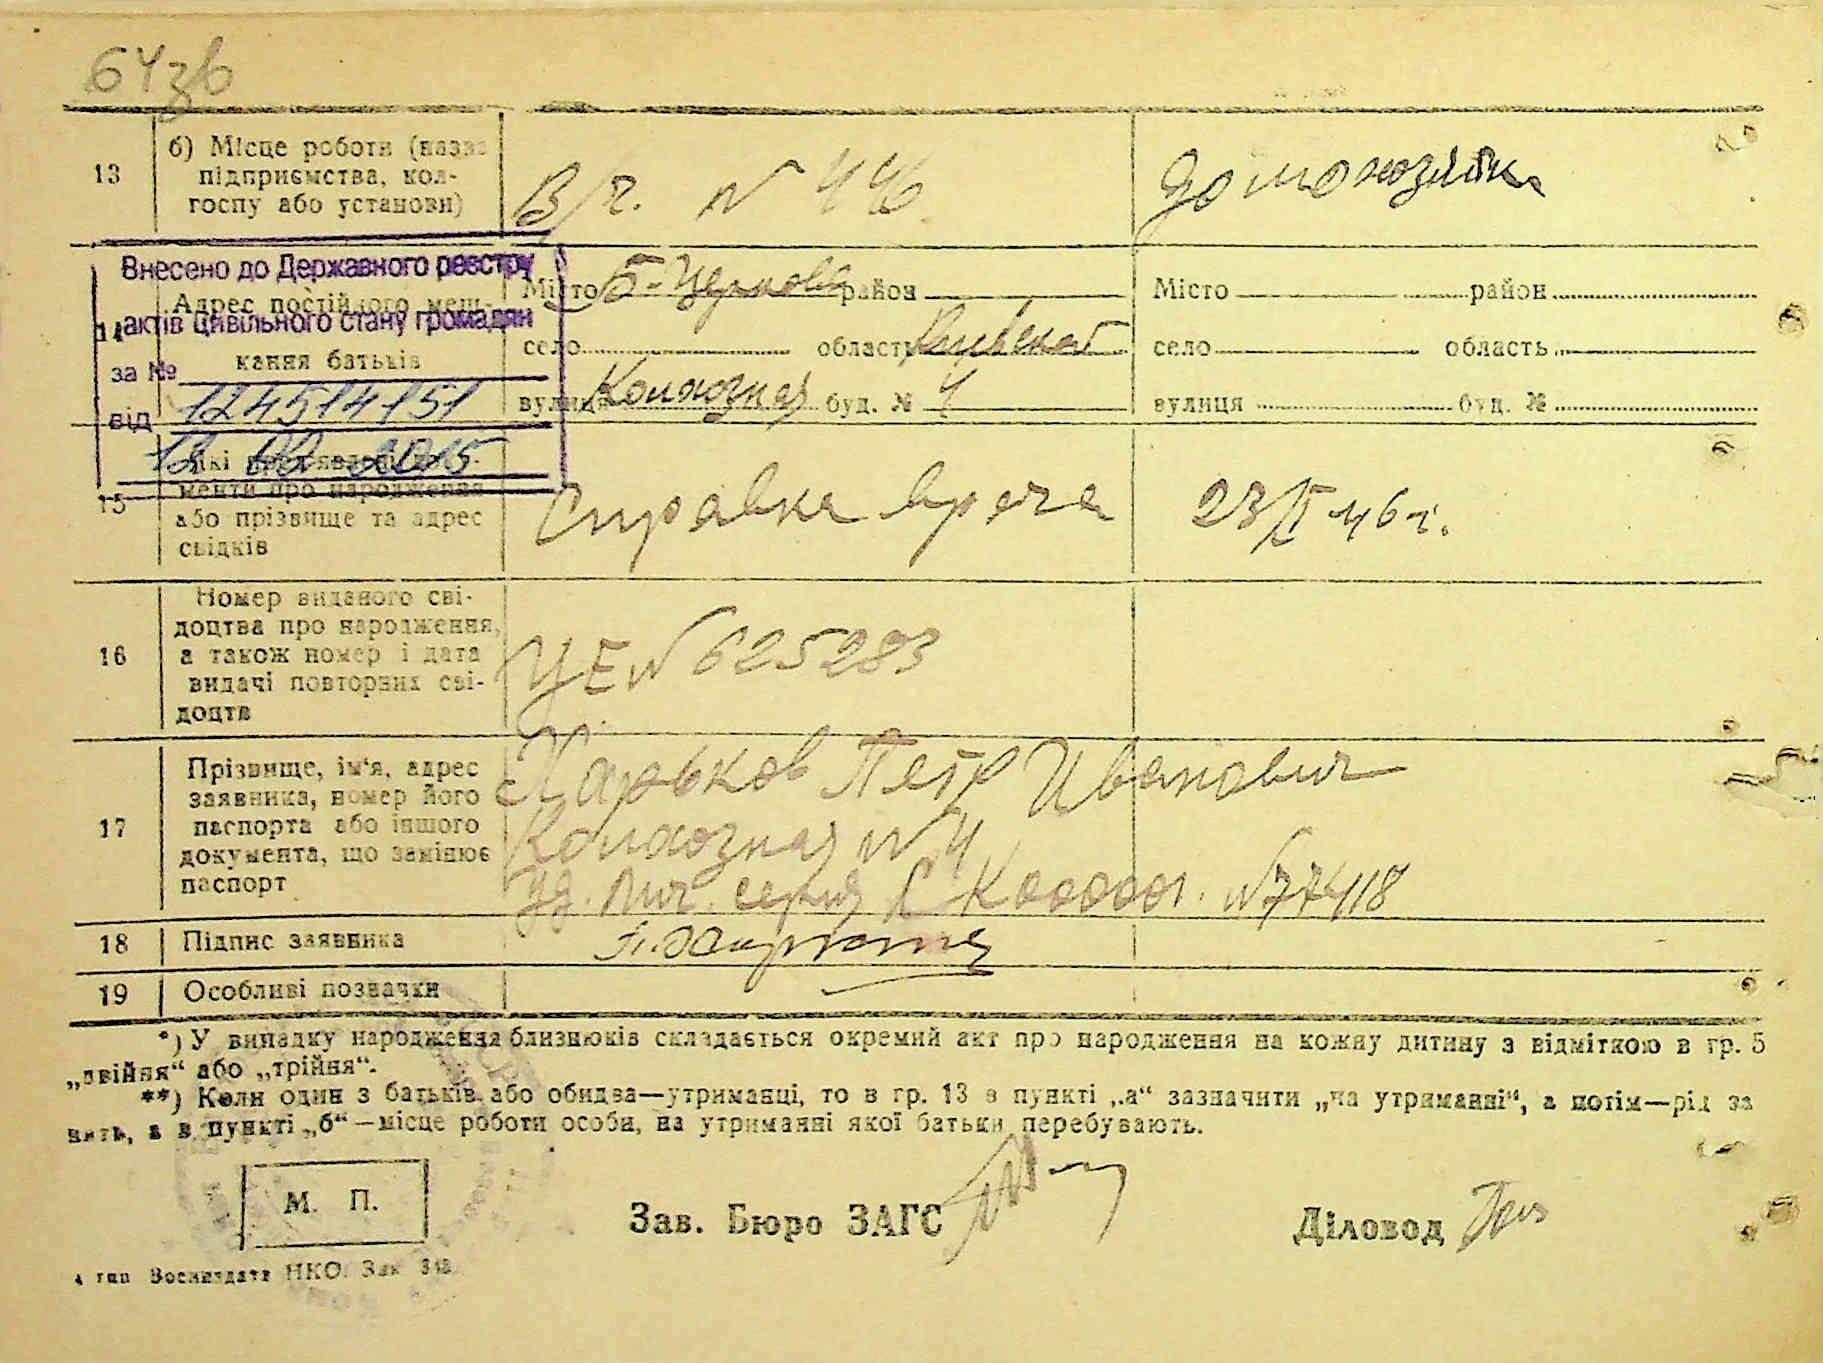 64зв
13
б) Місце роботи (назва
підприємства, кол-
госпу або установи)
В/ч. N 446
домохозяйка
Внесено до Державного реєстру
актів цивільного стану громадян
за № 124514151
від 12 02 2015
14
Адрес постійного меш-
кання батьків
Місто Б-Церковь район
село область Киевская
вулиця Колхозная буд. № 4
Місто район
село область
вулиця буд. №
15
Які пред'явлені доку-
менти про народження
або прізвище та адрес
свідків
Справка врача
23/II 46 г.
16
Номер виданого сві-
доцтва про народження,
а також номер і дата
видачі повторних сві-
доцтв
ЦЕ N 625283
17
Прізвище, ім'я, адрес
заявника, номер його
паспорта або іншого
документа, що замінює
паспорт
Харьков Петр Иванович
Колхозная N 4
уд. лич. серия СК 000001. N 77418
18
Підпис заявника
19
Особливі позначки
*) У випадку народження близнюків складається окремий акт про народження на кожну дитину з відміткою в гр. 5
„двійня“ або „трійня“.
**) Коли один з батьків або обидва—утриманці, то в гр. 13 в пункті „а“ зазначити „на утриманні“, а потім—рід за
нять, а в пункті „б“—місце роботи особи, на утриманні якої батьки перебувають.
М. П.
Зав. Бюро ЗАГС
Діловод
4 тип Воениздата НКО. Зак 343